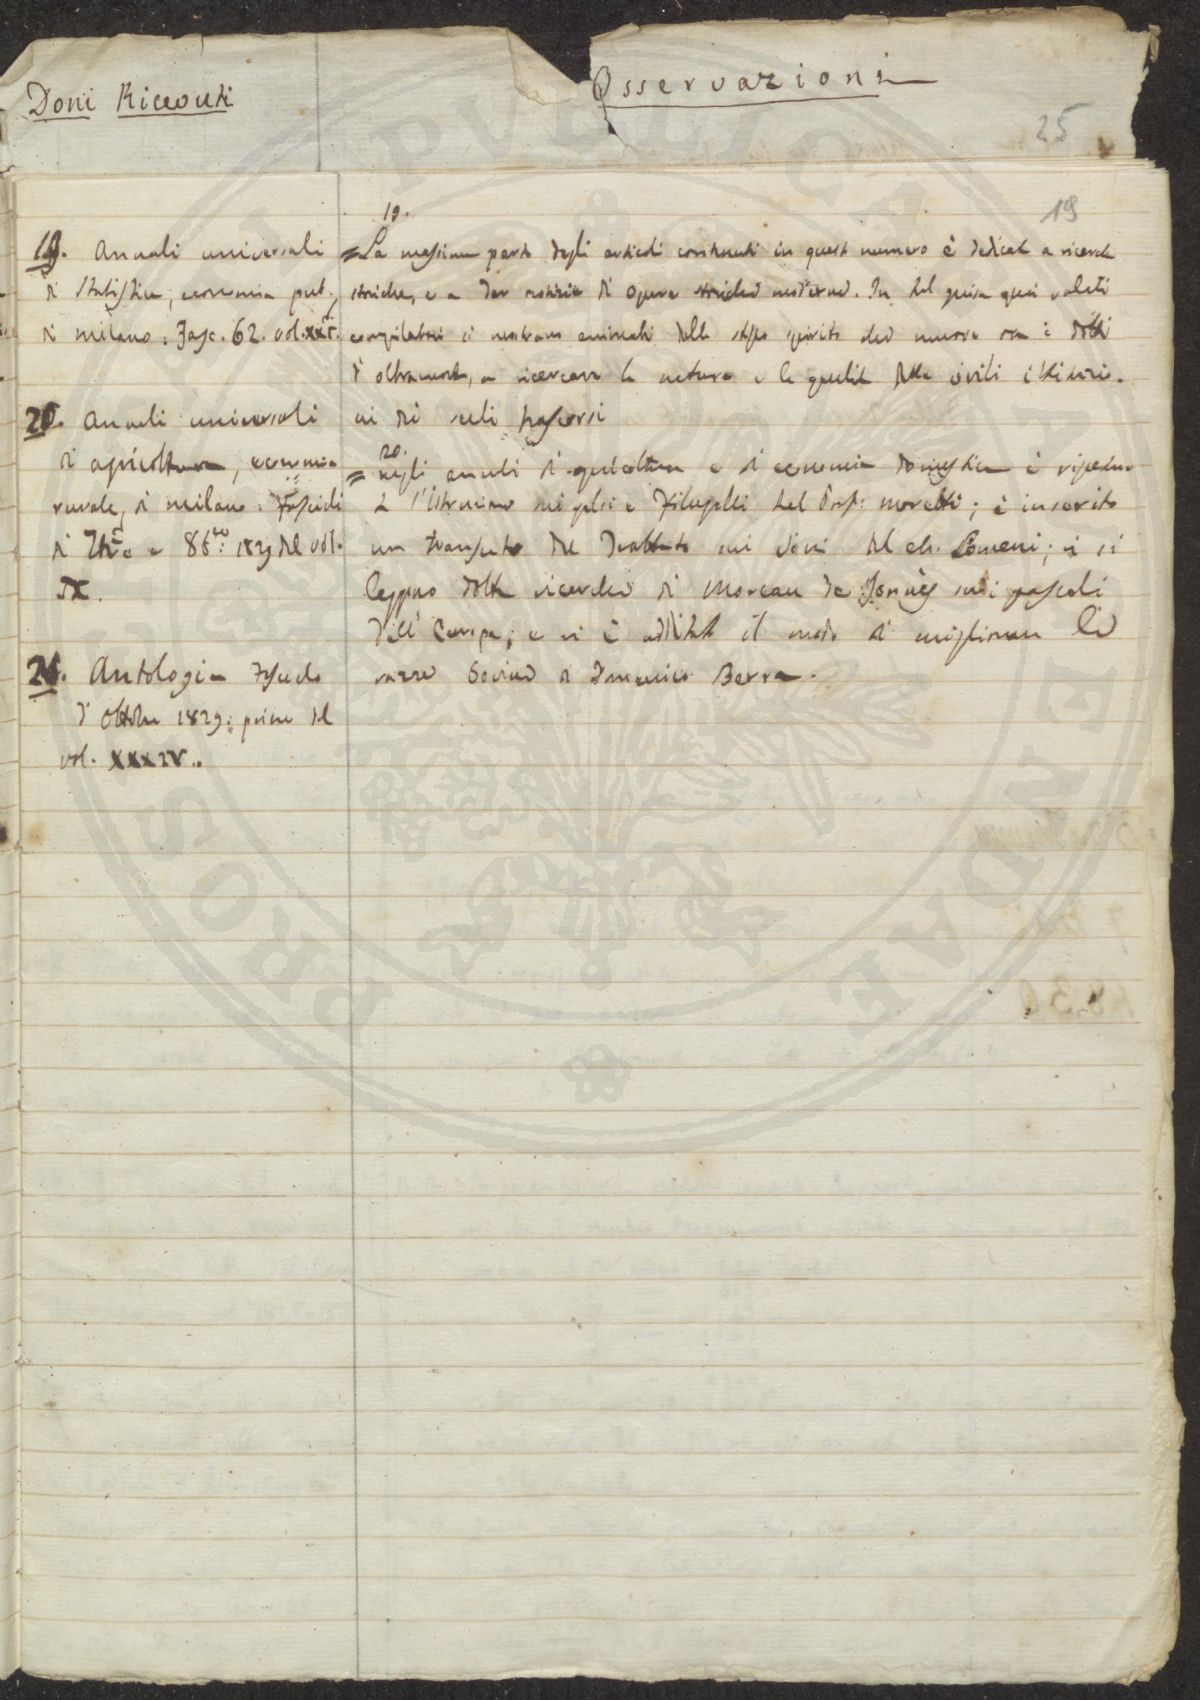 Doni Ricevuti
Osservazioni
25
19
19. Annali universali
di Statistica, economia pub.,
di milano: Fasc. 62. vol. XXI.
20. Annali universali
di agricoltura, economia
rurale, di milano: Fascicoli
di e 86 1829 del vol.
IX.
21. Antologia Fascicolo
d'ottobre 1829: primo del
vol. XXXIV..
19.
= La massima parte degli articoli contenuti in questo numero è dedicata a ricerche
storiche, e a dar notizie di opere storiche moderne. In tal guisa quei valenti
compilatori si mostrano animati dello stesso spirito che muove ora i dotti
d'oltramonte, a ricercare la natura e le qualità delle civili istituzio-
ni di secoli trascorsi
20.
= negli annali di agricoltura e di economia domestica è riportata
l'Istruzione sui gelsi e Filugelli del Prof: moretti; è inserito
un transunto del Trattato sui vini del ch. Lomeni; vi si
leggono dotte ricerche di Moreau de Jonnès sui pascoli
dell'Europa; e vi è additato il modo di migliorare le
razze bovine di Domenico Berra.